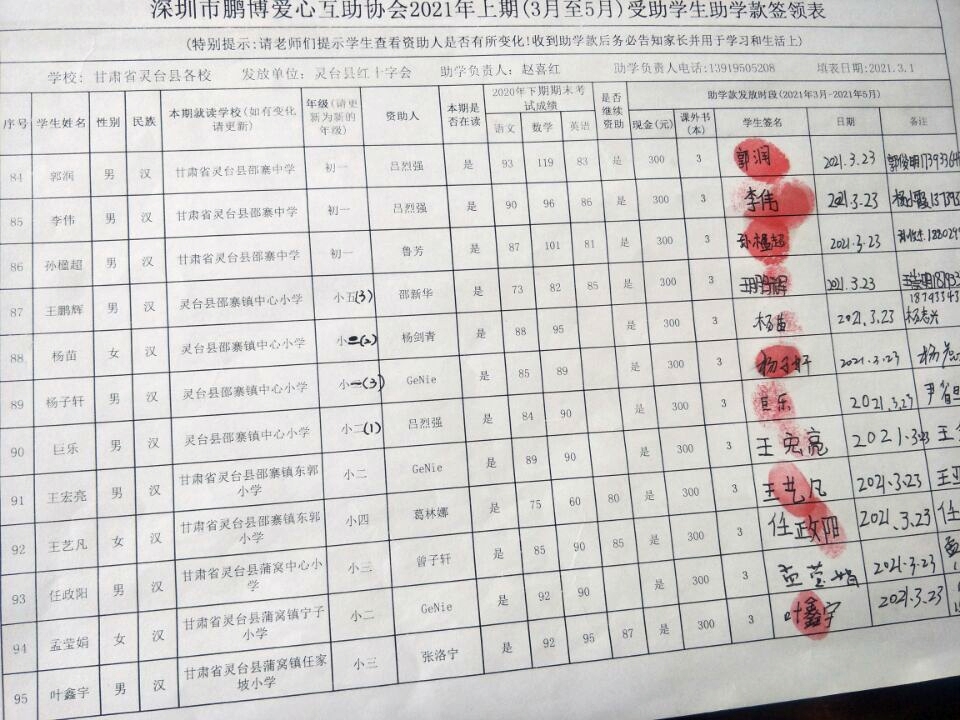 深圳市鹏博爱心互助协会2021年上期(3月至5月)受助学生助学款签领表
(特别提示:请老师们提示学生查看资助人是否有所变化!收到助学款后务必告知家长并用于学习和生活上)
学校: 甘肃省灵台县各校 发放单位: 灵台县红十字会 助学负责人: 赵喜红 助学负责人电话:13919505208 填表日期:2021.3.1
序号 学生姓名 性别 民族 本期就读学校(如有变化请更新) 年级(请更新为新的年级) 资助人 本期是否在读 2020年下期期末考试成绩 语文 数学 英语 是否继续资助 助学款发放时段(2021年3月-2021年5月) 现金(元) 课外书(本) 学生签名 日期 备注
84 郭润 男 汉 甘肃省灵台县邵寨中学 初一 吕烈强 是 93 119 83 是 300 3 郭润 2021.3.23
85 李伟 男 汉 甘肃省灵台县邵寨中学 初一 吕烈强 是 90 96 86 是 300 3 李伟 2021.3.23
86 孙楹超 男 汉 甘肃省灵台县邵寨中学 初一 鲁芳 是 87 101 81 是 300 3 孙楹超 2021.3.23
87 王鹏辉 男 汉 灵台县邵寨镇中心小学 小五(3) 邵新华 是 73 82 85 是 300 3 王鹏辉 2021.3.23
88 杨苗 女 汉 灵台县邵寨镇中心小学 小二(2) 杨剑青 是 88 95 是 300 3 杨苗 2021.3.23 杨志兴
89 杨子轩 男 汉 灵台县邵寨镇中心小学 小一(3) GeNie 是 85 89 是 300 3 杨子轩 2021.3.23
90 巨乐 男 汉 灵台县邵寨镇中心小学 小二(1) 吕烈强 是 84 90 是 300 3 巨乐 2021.3.23
91 王宏亮 男 汉 甘肃省灵台县邵寨镇东郭小学 小二 GeNie 是 89 90 是 300 3 王宏亮 2021.3.23
92 王艺凡 女 汉 甘肃省灵台县邵寨镇东郭小学 小四 葛林娜 是 75 60 80 是 300 3 王艺凡 2021.3.23
93 任政阳 男 汉 甘肃省灵台县蒲窝中心小学 小三 曾子轩 是 85 90 85 是 300 3 任政阳 2021.3.23
94 孟莹娟 女 汉 甘肃省灵台县蒲窝镇宁子小学 小二 GeNie 是 92 90 是 300 3 孟莹娟 2021.3.23
95 叶鑫宇 男 汉 甘肃省灵台县蒲窝镇任家坡小学 小三 张洛宁 是 92 95 87 是 300 3 叶鑫宇 2021.3.23